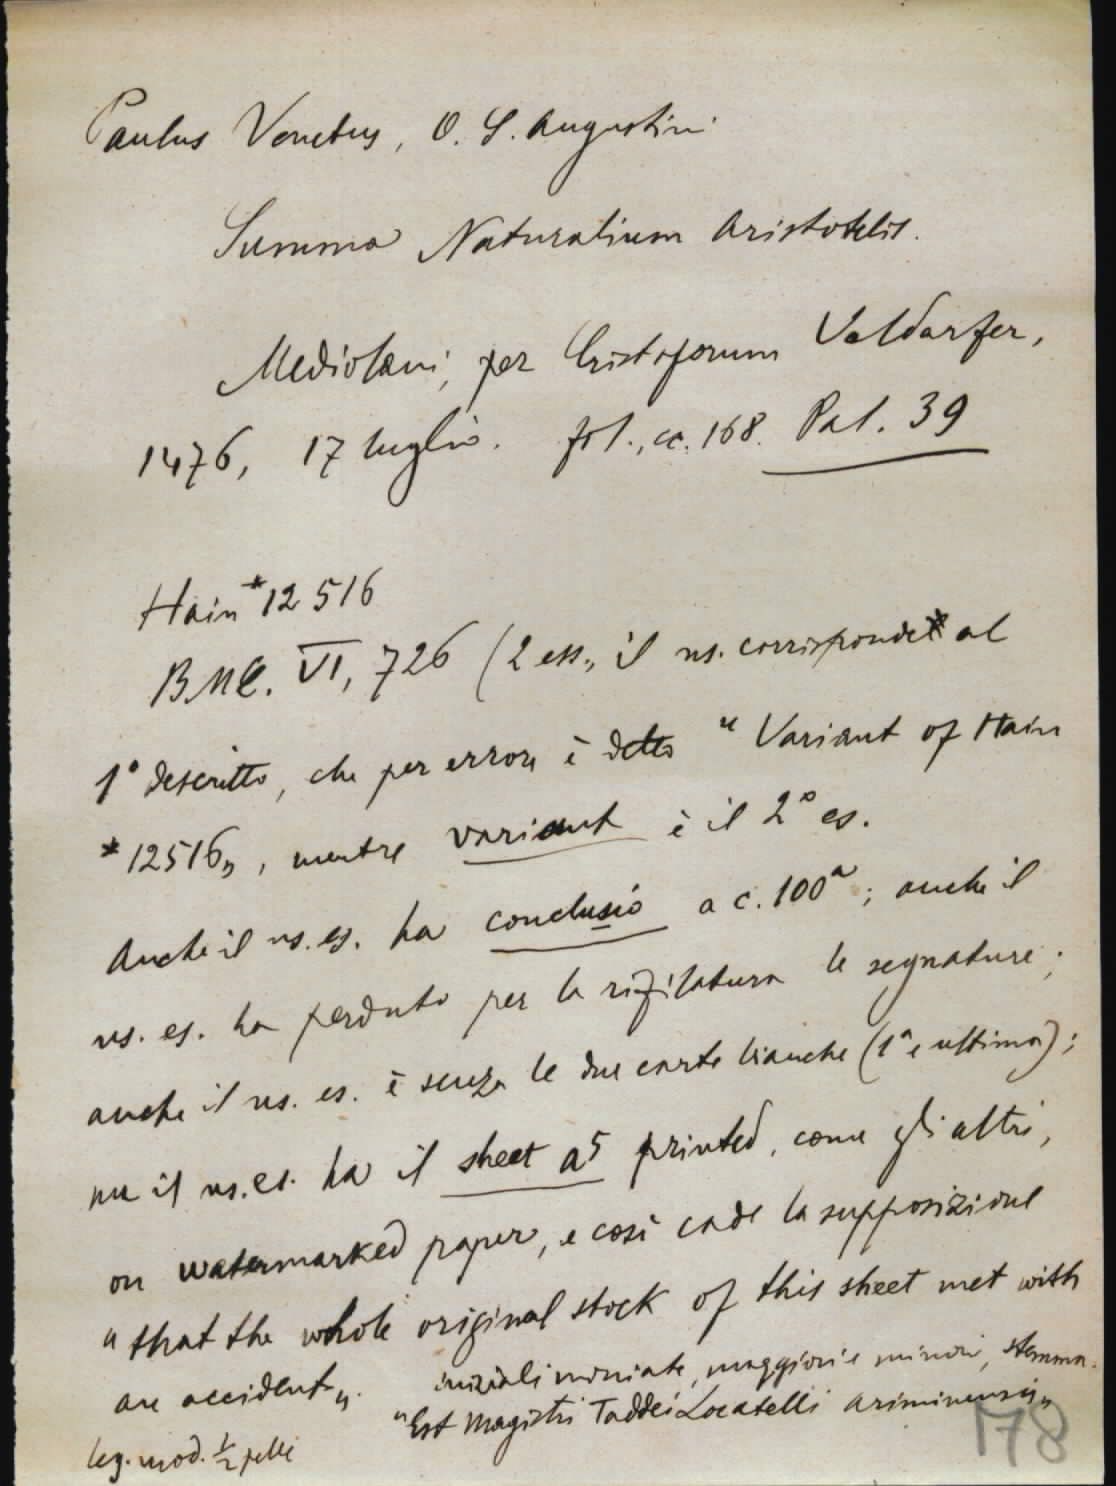 Paulus Venetus, O. S. Augustini
Summa Naturalium Aristotelis.
Mediolani, per Cristoforum Valdarfer,
1476, 17 luglio. fol., cc. 168. Pal. 39
Hain *12516
BMC. VI, 726 (2 ess., il ns. corrisponde al
1° descritto, che per errore è detto "Variant of Hain
*12516", mentre variant è il 2° es.
Anche il ns. es. ha conclusio a c. 100a; anche il
ns. es. ha perduto per la rifilatura le segnature;
anche il ns. es. è senza le due carte bianche (1a e ultima);
ma il ns. es. ha il sheet a5 printed, come gli altri,
on watermarked paper, e così cade la supposizione
"that the whole original stock of this sheet met with
an accident".
iniziali miniate, maggiori e minori, stemma.
"Est Magistri Taddei Locatelli ariminensis"
leg. mod. 1/2 pelle
178